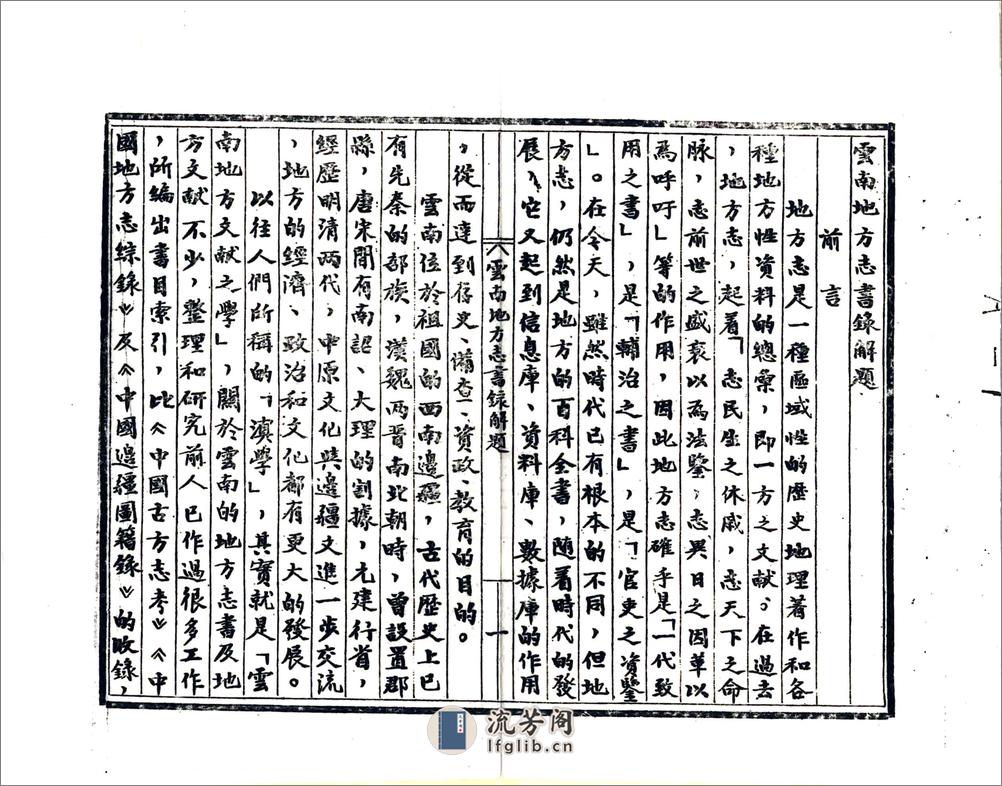 雲南地方志書錄解題
前言
地方志是一種區域性的歷史地理著作和各
種地方性資料的總彙，即一方之文獻。在過去
，地方志，起着「志民生之休戚，志天下之命
脉，志前世之盛衰以為法鑒，志異日之因革以
為呼吁」等的作用，因此地方志確乎是「一代致
用之書」，是「輔治之書」，是「官吏之資鑒
」。在今天，雖然時代已有根本的不同，但地
方志，仍然是地方的百科全書，隨着時代的發
展，它又起到信息庫、資料庫、數據庫的作用
雲南地方志書錄解題
一
，從而達到存史、備查、資政、教育的目的。
雲南位於祖國的西南邊疆，古代歷史上已
有先秦的部族，漢魏兩晋南北朝時，曾設置郡
縣，唐宋間有南詔、大理的割據，元建行省，
經歷明清兩代，中原文化與邊疆文進一步交流
，地方的經濟、政治和文化都有更大的發展。
以往人們所稱的「滇學」，其實就是「雲
南地方文獻之學」，關於雲南的地方志書及地
方文献不少，整理和研究前人已作過很多工作
，所編出書目索引，比《中國古方志考》《中
國地方志綜錄》及《中國邊疆圖籍錄》的收錄，
流芳阁
lfglib.cn